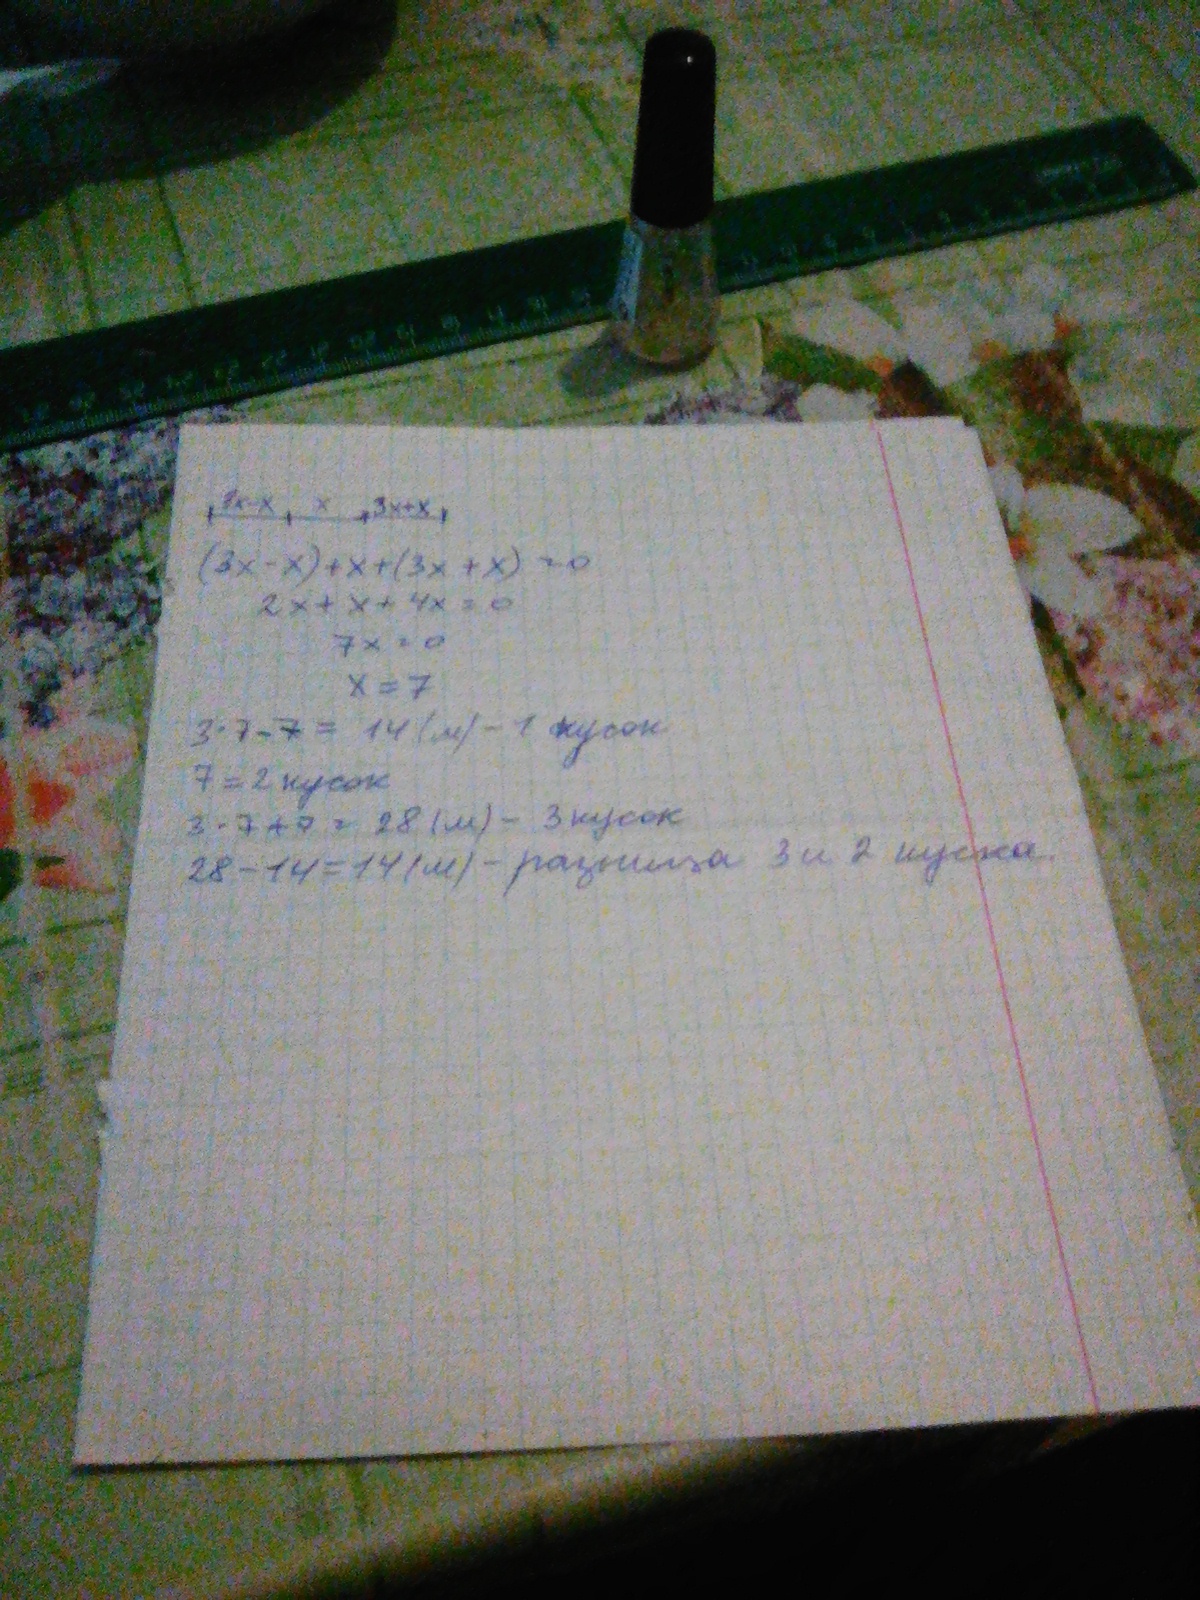 3x-x x 3x+x
(3x-x)+x+(3x+x)=0
2x+x+4x=0
7x=0
x=7
3·7-7= 14(м)-1 кусок
7=2 кусок
3·7+7= 28(м)- 3 кусок
28-14=14(м)- разница 3 и 2 куска